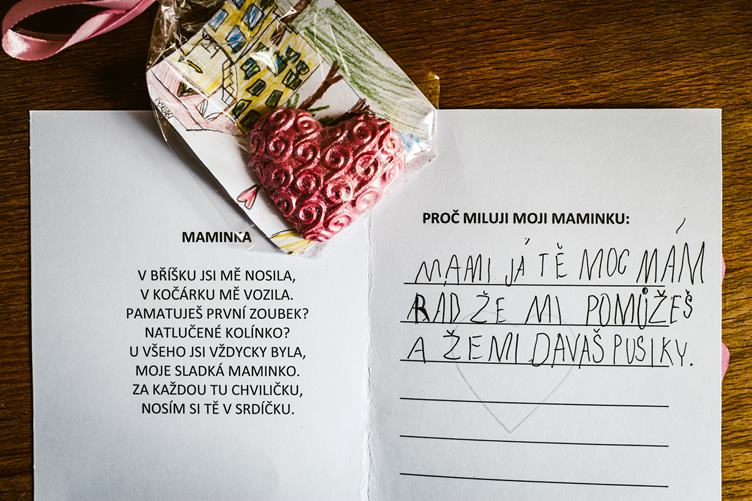 MAMINKA
V BŘÍŠKU JSI MĚ NOSILA,
V KOČÁRKU MĚ VOZILA.
PAMATUJEŠ PRVNÍ ZOUBEK?
NATLUČENÉ KOLÍNKO?
U VŠEHO JSI VŽDYCKY BYLA,
MOJE SLADKÁ MAMINKO.
ZA KAŽDOU TU CHVILIČKU,
NOSÍM SI TĚ V SRDÍČKU.
PROČ MILUJI MOJI MAMINKU:
MAMI JÁ TĚ MOC MÁM
RAD ŽE MI POMŮŽEŠ
A ŽE MI DAVAŠ PUSIKY.